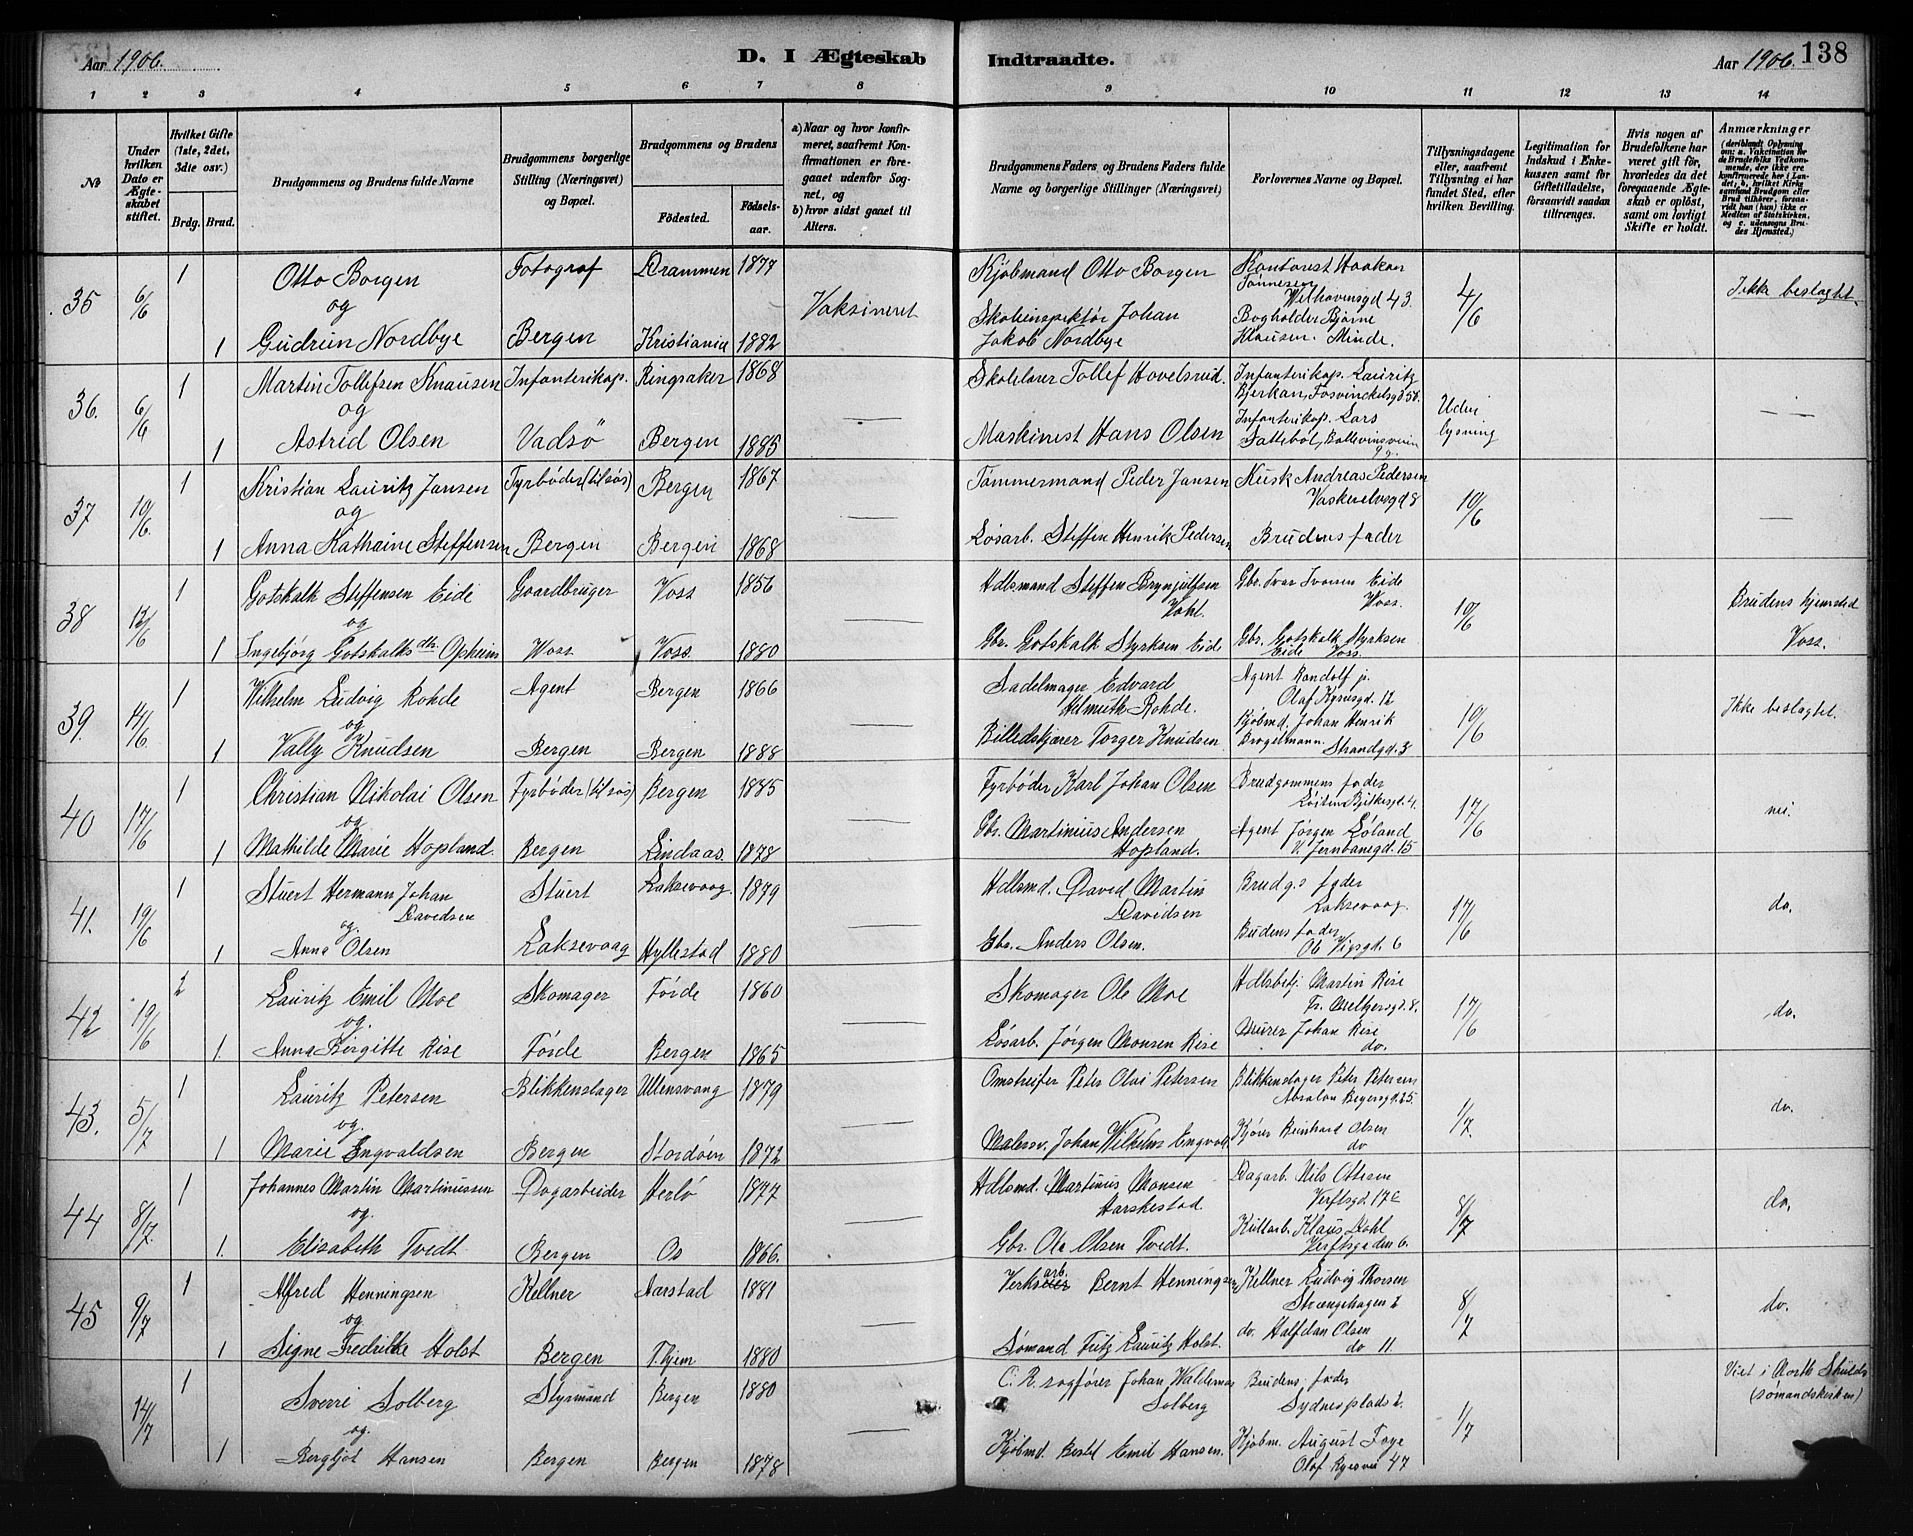 Aar 1906. D. I Ægteskab Indtraadte. Aar 1906. 138
1 2 3 4 5 6 7 8 9 10 11 12 13 14
No
Under hvilken Dato er Ægteskabet stiftet.
Hvilket Gifte (1ste, 2det, 3die osv.)
Brdg. Brud.
Brudgommens og Brudens fulde Navne
Brudgommens borgerlige Stilling (Næringsvei) og Bopæl.
Brudgommens og Brudens
Fødested. Fødselsaar.
a) Naar og hvor konfirmeret, saafremt Konfirmationen er foregaaet udenfor Sognet, og
b) hvor sidst gaaet til Alters.
Brudgommens Faders og Brudens Faders fulde Navne og borgerlige Stillinger (Næringsvei)
Forlovernes Navne og Bopæl.
Tillysningsdagene eller, saafremt Tillysning ei har fundet Sted, efter hvilken Bevilling.
Legitimation for Indskud i Enkekassen samt for Giftetilladelse, forsaavidt saadan tiltrænges.
Hvis nogen af Brudefolkene har været gift før, hvorledes da det foregaaende Ægteskab er opløst, samt om lovligt Skifte er holdt.
Anmærkninger (deriblandt Oplysning om: a. Vakcination for de Brudefolks Vedkommende, der ikke ere konfirmerede her i Landet, b. hvilket Kirkesamfund Brudgom eller Brud tilhører, forsaavidt han (hun) ikke er Medlem af Statskirken, og c. udensogns Brudes Hjemsted.)
35 6/6 1 Otto Borgen Fotograf Drammen 1877 Kjøbmand Otto Borgen Kontorist Haakon Tønnesen Welhavensgd 43. 4/6 Ikke beslægtet.
og Vaksineret
1 Gudrun Nordbye Bergen Kristiania 1882 Skoleinspektør Johan Jakob Nordbye Bogholder Bjarne Klausen. Minde.
36. 6/6 1 Martin Tollefsen Knausen Infanterikap. Ringsaker 1868 Skolelærer Tollef Hovelsrud. Infanterikap. Lauritz Bjerkan, Fosvinckelsgd 58. Uden lysning —
og —
1 Astrid Olsen Vadsö Bergen 1885 Maskinist Hans Olsen Infanterikap. Lars
37 10/6. 1 Kristian Lauritz Jansen Fyrbøder (tilsøs) Bergen 1867 Tømmermand Peder Jansen Kusk Andreas Pedersen Vaskerelvsgd 8 10/6 —
og —
1 Anna Kathrine Steffensen Bergen Bergen 1868 Løsarb. Steffen Henrik Pedersen Brudens fader
38 12/6 1 Gotskalk Steffensen Eide Gaardbruger Voss 1856 Hdlsmand Steffen Brynjulfsen Gbr. Ivar Ivarsen Eide Voss. 10/6 Brudens hjemsted Voss.
og —
1 Ingebjørg Gotskalksdtr. Opheim Voss Voss. 1880 Gbr. Gotskalk Styrksen Eide Gbr. Gotskalk Styrksen Eide Voss.
39. 14/6 1 Wilhelm Ludvig Rohde Agent Bergen 1866 Sadelmager Edvard Helmuth Rohde. Agent Randolf jr. Olaf Kyrresgd. 12 10/6 Ikke beslægtet.
og —
1 Vally Knudsen Bergen Bergen 1888 Billedskjærer Torger Knudsen Kjøbmd. Johan Henrik Brøgelmann. Strandgd. 3
40 17/6 1 Christian Nikolai Olsen Fyrbøder (tilsøs) Bergen 1885 Fyrbøder Karl Johan Olsen Brudgommens fader 17/6 nei.
og —
1 Mathilde Marie Hopland. Bergen Lindaas. 1878 Gbr. Martinius Andersen Hopland. Agent Jørgen Løland N. Jernbanegd. 15
41. 19/6 1 Stuert Hermann Johan Davidsen Stuert Laksevaag. 1879 Hdlsmd. David Martin Davidsen Brudg.s fader Laksevaag. 17/6 do.
og. —
1 Anna Olsen Laksevaag Hyllestad 1880 Gbr. Anders Olsen. Brudens fader Ole Vigsgd. 6
42 19/6 2 Lauritz Emil Moe Skomager Førde 1860 Skomager Ole Moe Hdlsbetj. Martin Rise Fr. Meltzersgd. 8. 17/6 do.
og. —
1. Anna Birgitte Rise Førde Bergen 1865 Løsarb. Jørgen Monsen Rise Murer Johan Rise do.
43. 5/7 1 Lauritz Petersen Blikkenslager Ullensvang 1879 Omstreifer Peter Olai Petersen Blikkenslager Peter Petersen Absalon Beyersgd. 25. 1/7. do.
og. —
1 Marie Engvaldsen Bergen Stordøen 1872 Malersv. Johan Wilhelm Engvald Kjører Reinhard Olsen do
44 8/7. 1 Johannes Martin Martinussen Dagarbeider Herlö 1877 Hdlsmd. Martinus Monsen Harskestad. Dagarb. Nils Ottesen Verftsgd. 17c 8/7 do.
og. —
1. Elisabeth Tvedt. Bergen Os 1866. Gbr. Ole Olsen Tvedt. Kullarb. Klaus Dahl Verftsgaden 6.
45 9/7 1 Alfred Henningsen Kellner Aarstad 1881 Verksarb. Bernt Henningsen Kellner Ludvig Thorsen Strangehagen 2 8/7 do.
og —
1 Signe Fredrikke Holst Bergen T.hjem 1880 Sømand Fritz Lauritz Holst. do. Halfdan Olsen do 11.
14/7 1 Sverre Solberg Styrmand Bergen 1880 O. R. sagfører Johan Waldemar Solberg Brudens. fader Sydnesplads 2. 1/7 Viet i North Shields (sømandskirken)
og. —
1 Bergljot Hansen Bergen Bergen 1878 Kjøbmd. Bertel Emil Hansen. Kjøbm. August Faye Olaf Ryesvei 47